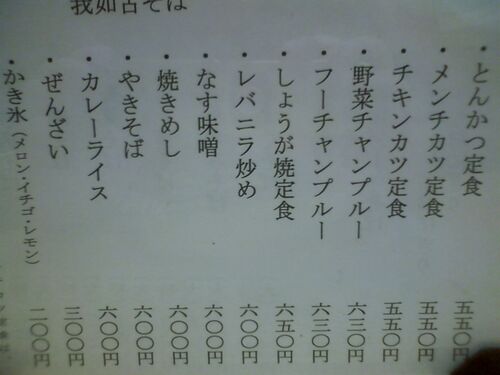 我如古そば
・とんかつ定食 五五〇円
・メンチカツ定食 五五〇円
・チキンカツ定食 五五〇円
・野菜チャンプルー 六三〇円
・フーチャンプルー 六三〇円
・しょうが焼定食 六五〇円
・レバニラ炒め 六〇〇円
・なす味噌 六〇〇円
・焼きめし 六〇〇円
・やきそば 六〇〇円
・カレーライス 六〇〇円
・ぜんざい 三〇〇円
・かき氷（メロン・イチゴ・レモン） 二〇〇円